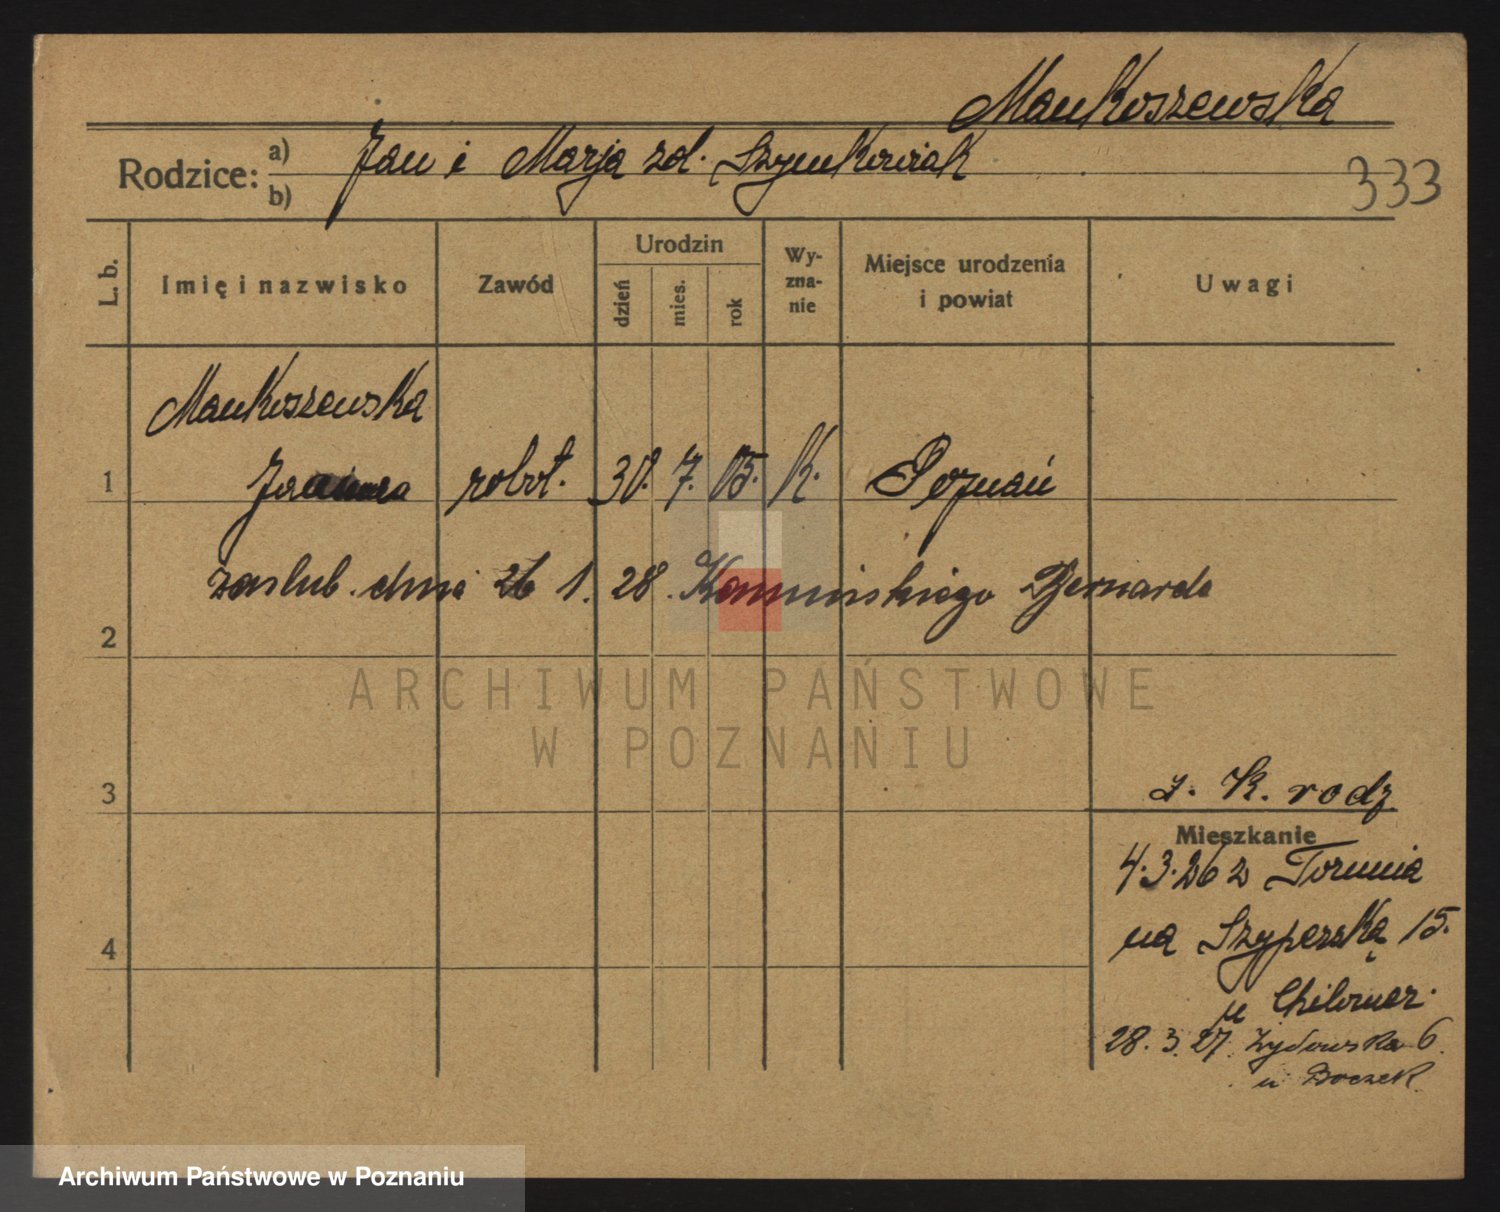 Mankoszewska
Rodzice: a) b) Jan i Marja zd. Szymkowiak
333
L. b.
Imię i nazwisko
Zawód
Urodzin
dzień
mies.
rok
Wy-
zna-
nie
Miejsce urodzenia
i powiat
Uwagi
Mankoszewska
1 Janina robot. 30. 7. 05. K. Poznań
zaslub. dnia 26 1. 28. Kamińskiego Bernarda
2
ARCHIWUM PAŃSTWOWE
W POZNANIU
3
z. K. rodz
Mieszkanie
4.3.26 z Torunia
na Szyperską 15.
4
u
28. 3. 27. Żydowska 6
u Boczek
Archiwum Państwowe w Poznaniu